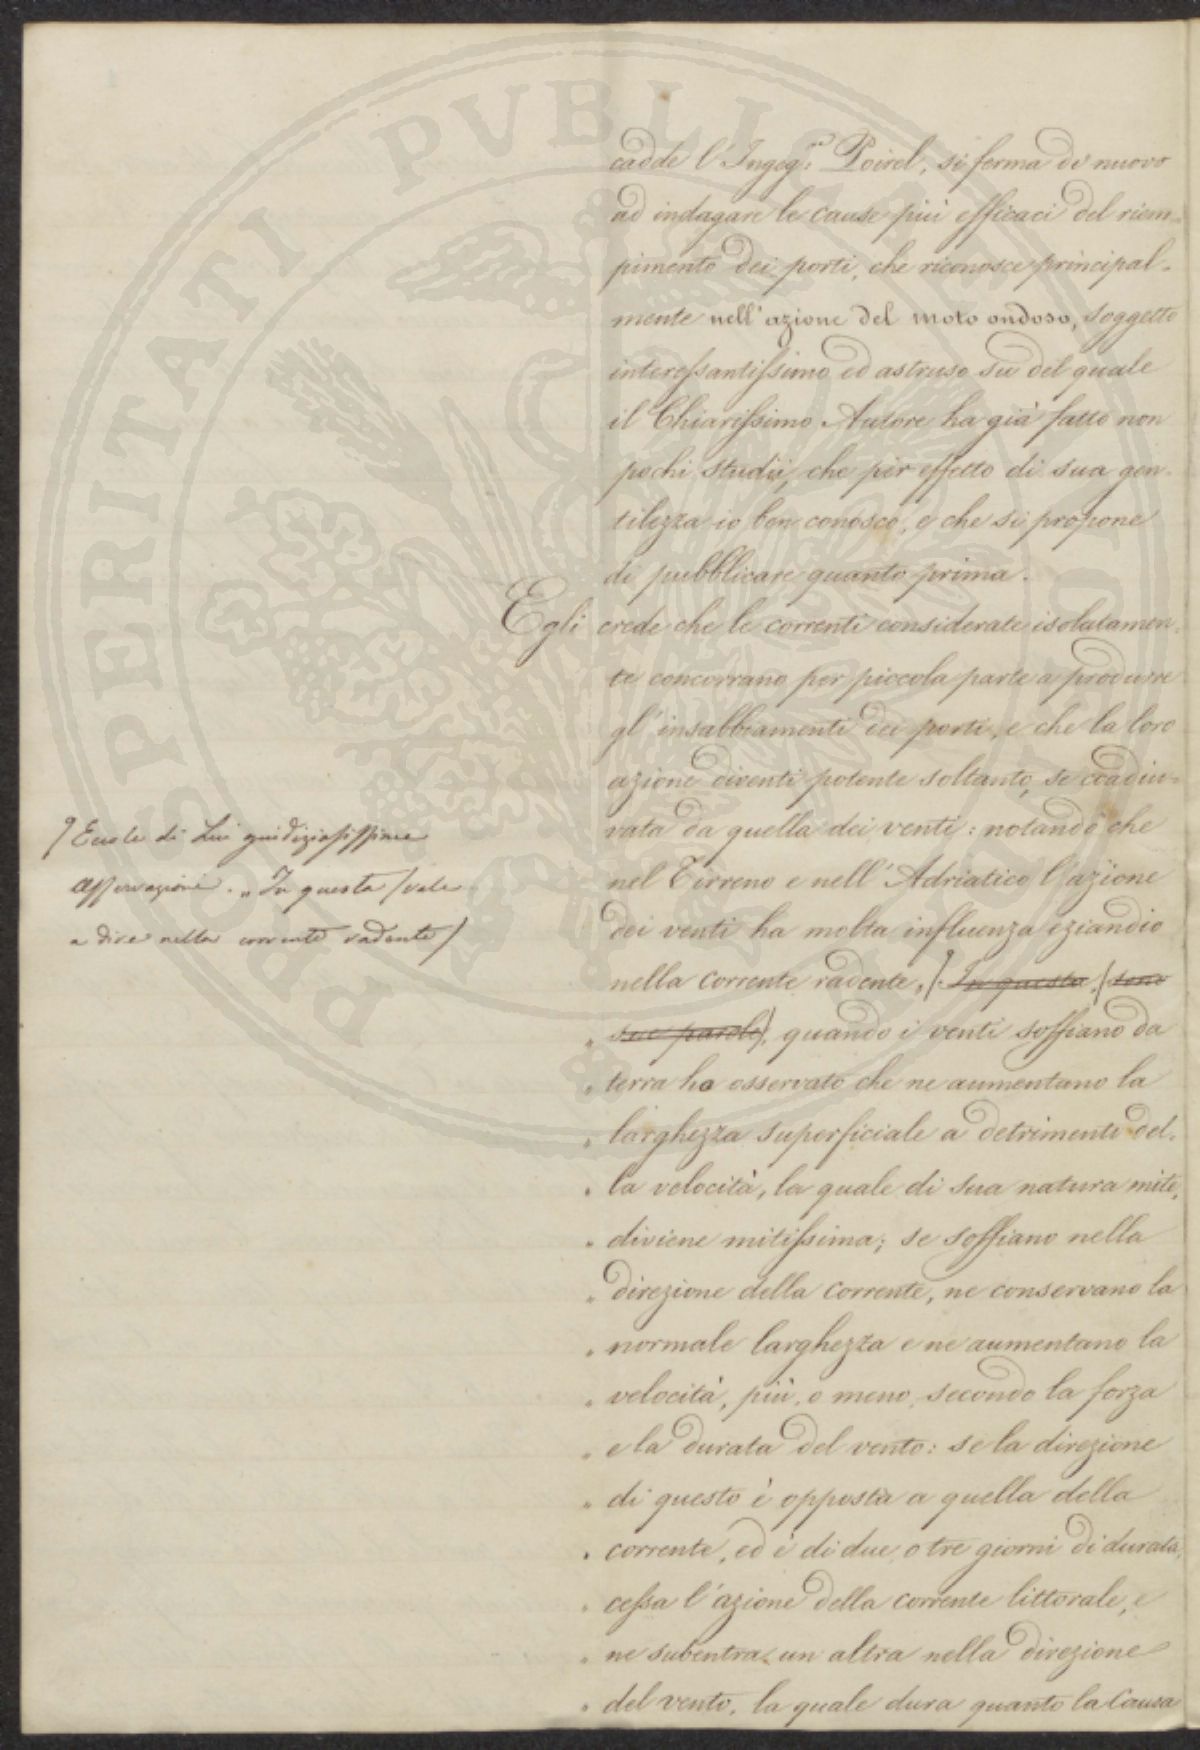 PROSPERITATI PUBLICAE
cadde l'Ingeg.re Poirel, si ferma di nuovo
ad indagare le cause più efficaci del riem-
pimento dei porti, che riconosce principal-
mente nell'azione del moto ondoso, soggetto
interessantissimo ed astruso su del quale
il Chiarissimo Autore ha già fatto non
pochi studii, che per effetto di sua gen-
tilezza io ben conosco, e che si propone
di pubblicare quanto prima.
Egli crede che le correnti considerate isolatamen-
te concorrano per piccola parte a produrre
gl'insabbiamenti dei porti, e che la loro
azione diventi potente soltanto, se coadiu-
vata da quella dei venti: notando che
nel Tirreno e nell'Adriatico l'azione
dei venti ha molta influenza eziandio
nella corrente radente, (. In questa (sono
" sue parole), quando i venti soffiano da
" terra ha osservato che ne aumentano la
" larghezza superficiale a detrimento del-
" la velocità, la quale di sua natura mite,
" diviene mitissima; se soffiano nella
" direzione della corrente, ne conservano la
" normale larghezza e ne aumentano la
" velocità, più, o meno, secondo la forza
" e la durata del vento: se la direzione
" di questo è opposta a quella della
" corrente, ed è di due o tre giorni di durata,
" cessa l'azione della corrente littorale, e
" ne subentra un altra nella direzione
" del vento, la quale dura quanto la causa
Ecco le di Lui giudiziosissime
osservazioni. „ In questa (vale
a dire nella corrente radente)